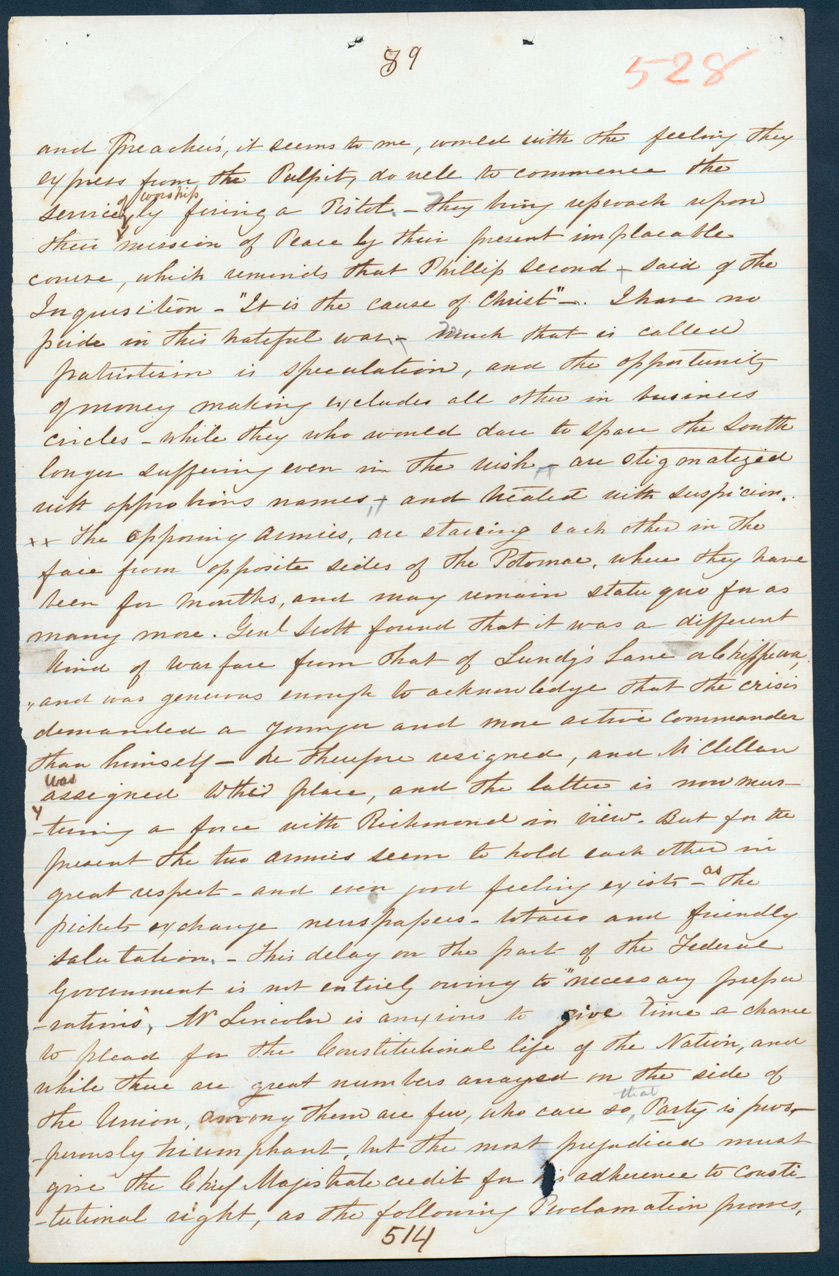 89
528
and Preachers, it seems to me, would with the feeling they
express from the Pulpit, do well to commence the
of worship
service, by firing a Pistol. - They bring reproach upon
their mission of Peace by their present implacable
course, which reminds that Phillip second + said of the
Inquisition - "It is the cause of Christ" -. I have no
pride in this hateful war - much that is called
patriotism is speculation, and the opportunity
of money making excludes all other in business
circles - while they who would dare to spare the South
longer suffering even in the wish - are stigmatized
with opprobrious names, + and treated with suspicion.
++ The opposing armies, are staring each other in the
face from opposite sides of the Potomac, where they have
been for months, and may remain statu quo for as
many more. Genl Scott found that it was a different
kind of warfare from that of Lundy's Lane or Chippewa,
and was generous enough to acknowledge that the crisis
demanded a younger and more active commander
than himself - he therefore resigned, and McClellan
was
assigned to his place, and the latter is now mus-
-tering a force with Richmond in view. But for the
present the two armies seem to hold each other in
great respect - and even good feeling exists - as the
pickets exchange newspapers - tobacco and friendly
salutation. - This delay on the part of the Federal
Government is not entirely owing to "necessary prepa
-rations", Mr Lincoln is anxious to give Time a chance
to plead for the Constitutional life of the Nation, and
while there are great numbers arrayed on the side of
that
the Union, among them are few, who care so, Party is pros-
-perously triumphant, but the most prejudiced must
give the Chief Magistrate credit for his adherence to consti-
-tutional right, as the following Proclamation proves,
514